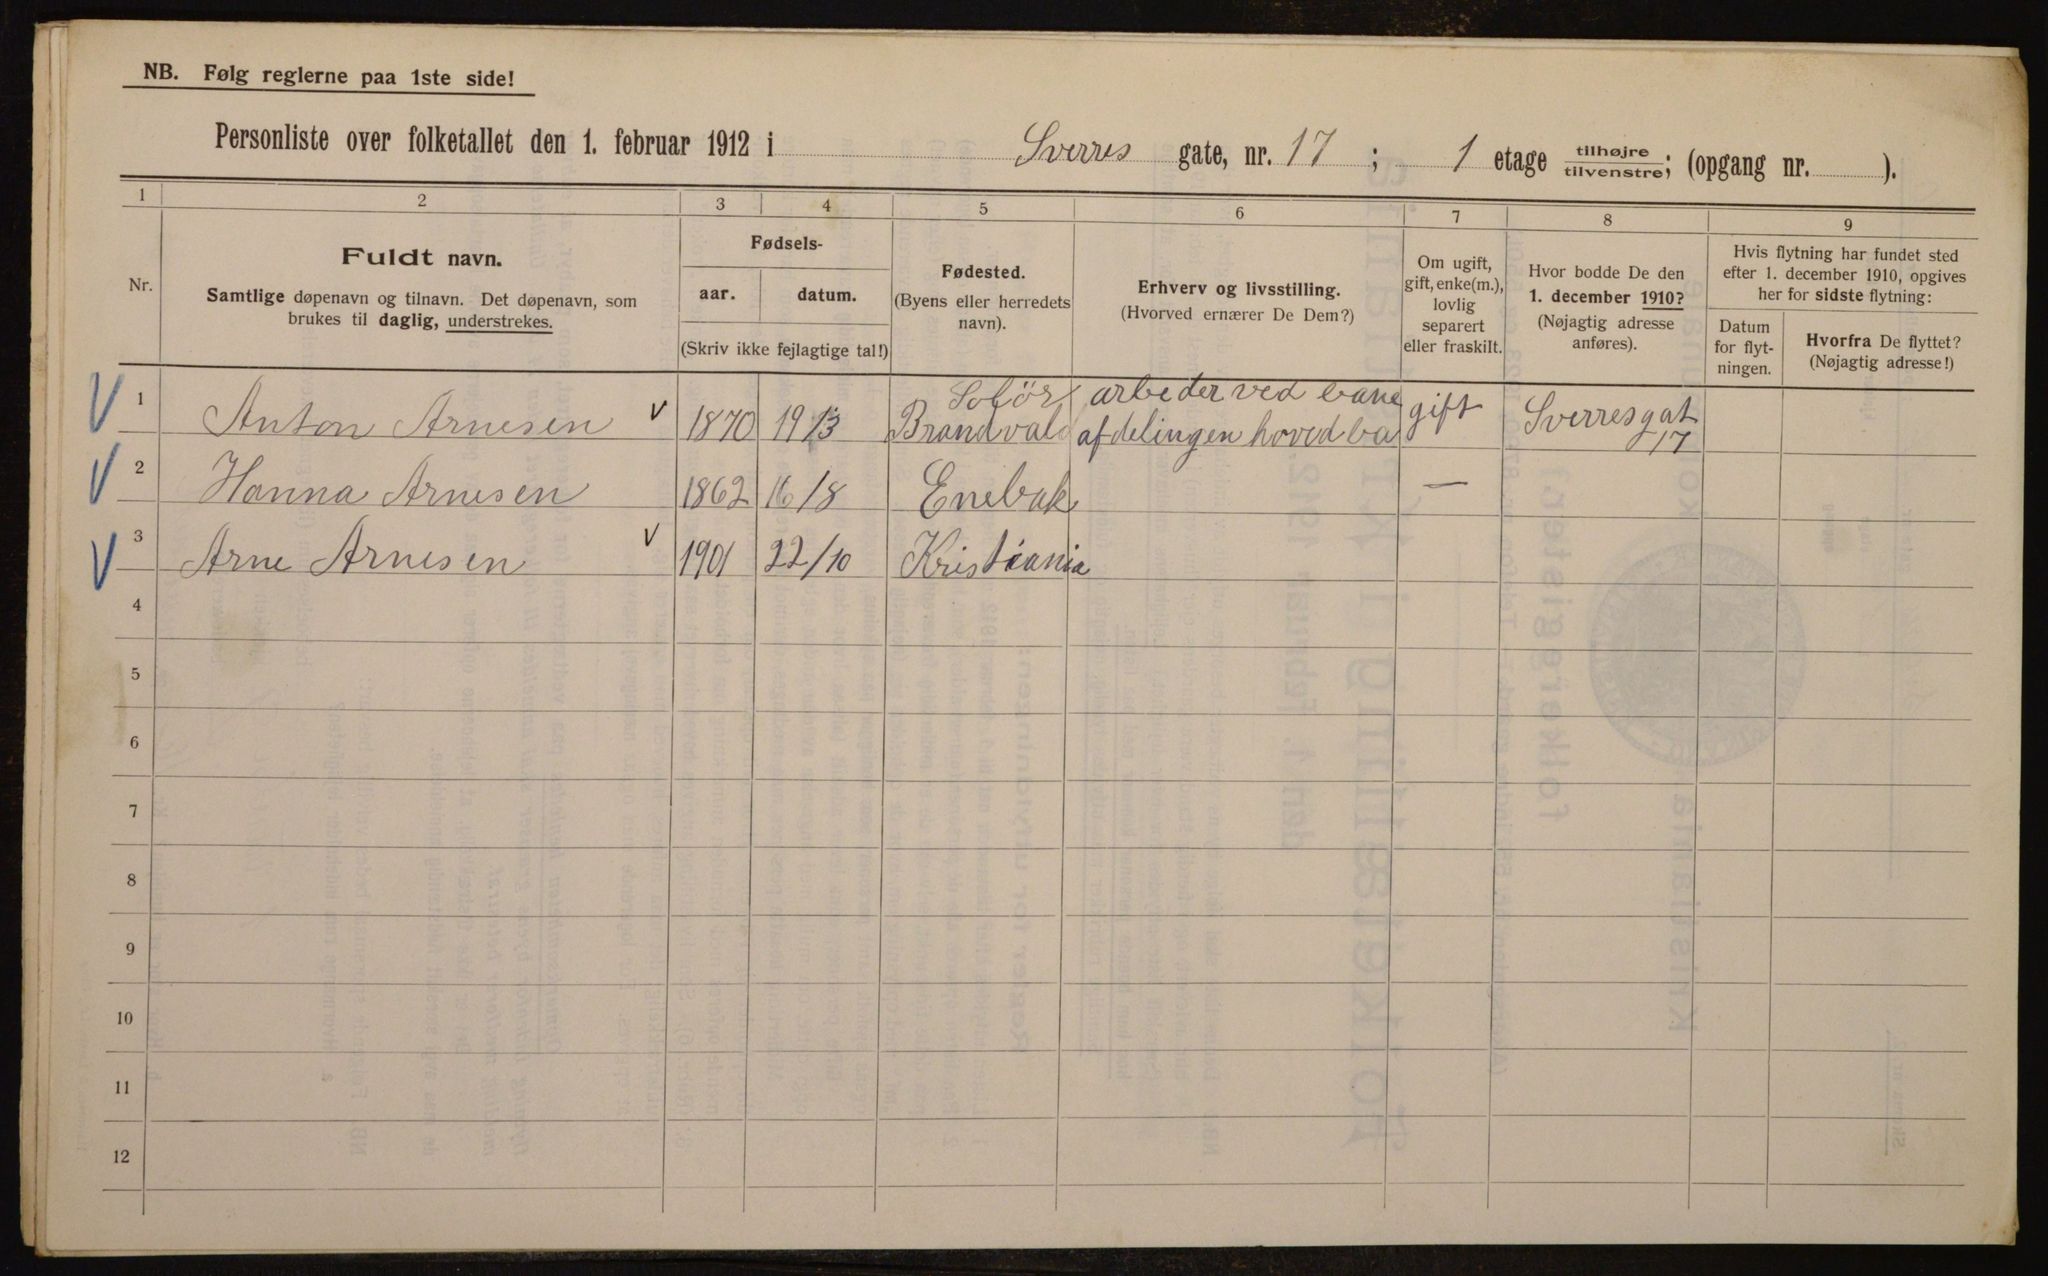 NB. Følg reglerne paa 1ste side!
Personliste over folketallet den 1. februar 1912 i Sverres gate, nr. 17 ; 1 etage tilhøjre/tilvenstre; (opgang nr. ).
1 2 3 4 5 6 7 8 9
Nr.
Fuldt navn.
Samtlige døpenavn og tilnavn. Det døpenavn, som
brukes til daglig, understrekes.
Fødsels-
aar. datum.
(Skriv ikke fejlagtige tal!)
Fødested.
(Byens eller herredets
navn).
Erhverv og livsstilling.
(Hvorved ernærer De Dem?)
Om ugift,
gift, enke(m.),
lovlig
separert
eller fraskilt.
Hvor bodde De den
1. december 1910?
(Nøjagtig adresse
anføres).
Hvis flytning har fundet sted
efter 1. december 1910, opgives
her for sidste flytning:
Datum
for flyt-
ningen.
Hvorfra De flyttet?
(Nøjagtig adresse!)
Solör arbeder ved bane
1 Anton Arnesen 1870 19/3 Brandvald afdelingen hoved ba gift Sverresgat
17
2 Hanna Arnesen 1862 16/8 Enebak —
3 Arne Arnesen 1901 22/10 Kristiania
4
5
6
7
8
9
10
11
12